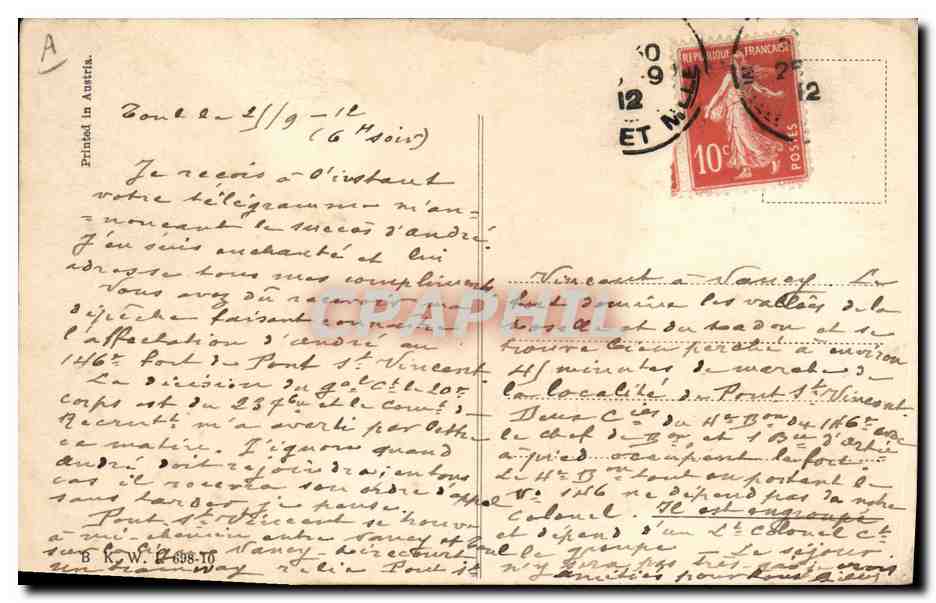 A
Printed in Austria.
Toul le 25/9-12
(6 H soir)
Je reçois à l'instant
votre télégramme m'an-
-nonçant le succès d'andré.
J'en suis enchanté et lui
adresse tous mes compliments
Vous avez dû recevoir ma
dépêche faisant connaître
l'affectation d'andré au
146e fort de Pont St Vincent
La décision du gal Ct le 20e
corps est du 23 7bre et le Comt de
Recrutt m'a averti par lettre
ce matin. J'ignore quand
andré doit rejoindre, en tous
cas il recevra son ordre d'appel
sans tarder je pense.
Pont St Vincent se trouve
à mi-chemin entre Nancy et Toul
sur la ligne Nancy-Mirecourt
un tramway relie Pont St
B. K. W. I. 698-10
Vincent à Nancy. Le
fort domine les vallées de la
Moselle et du Madon et se
trouve bien perché à environ
45 minutes de marche de
la localité de Pont St Vincent
Deux Cies du 4e Bon du 146 avec
le chef de Bon, et 1 Bie d'artie
à pied occupent le fort.
Le 4e Bon tout en portant le
No 146 ne dépend pas de notre
Colonel. Il est engroupé
et dépend d'un Lt Colonel Ct
le groupe - Le séjour
n'y sera pas très
amitiés pour tous
REPUBLIQUE FRANÇAISE
10c
POSTES
ET M
12
25
12
CPAPHIL